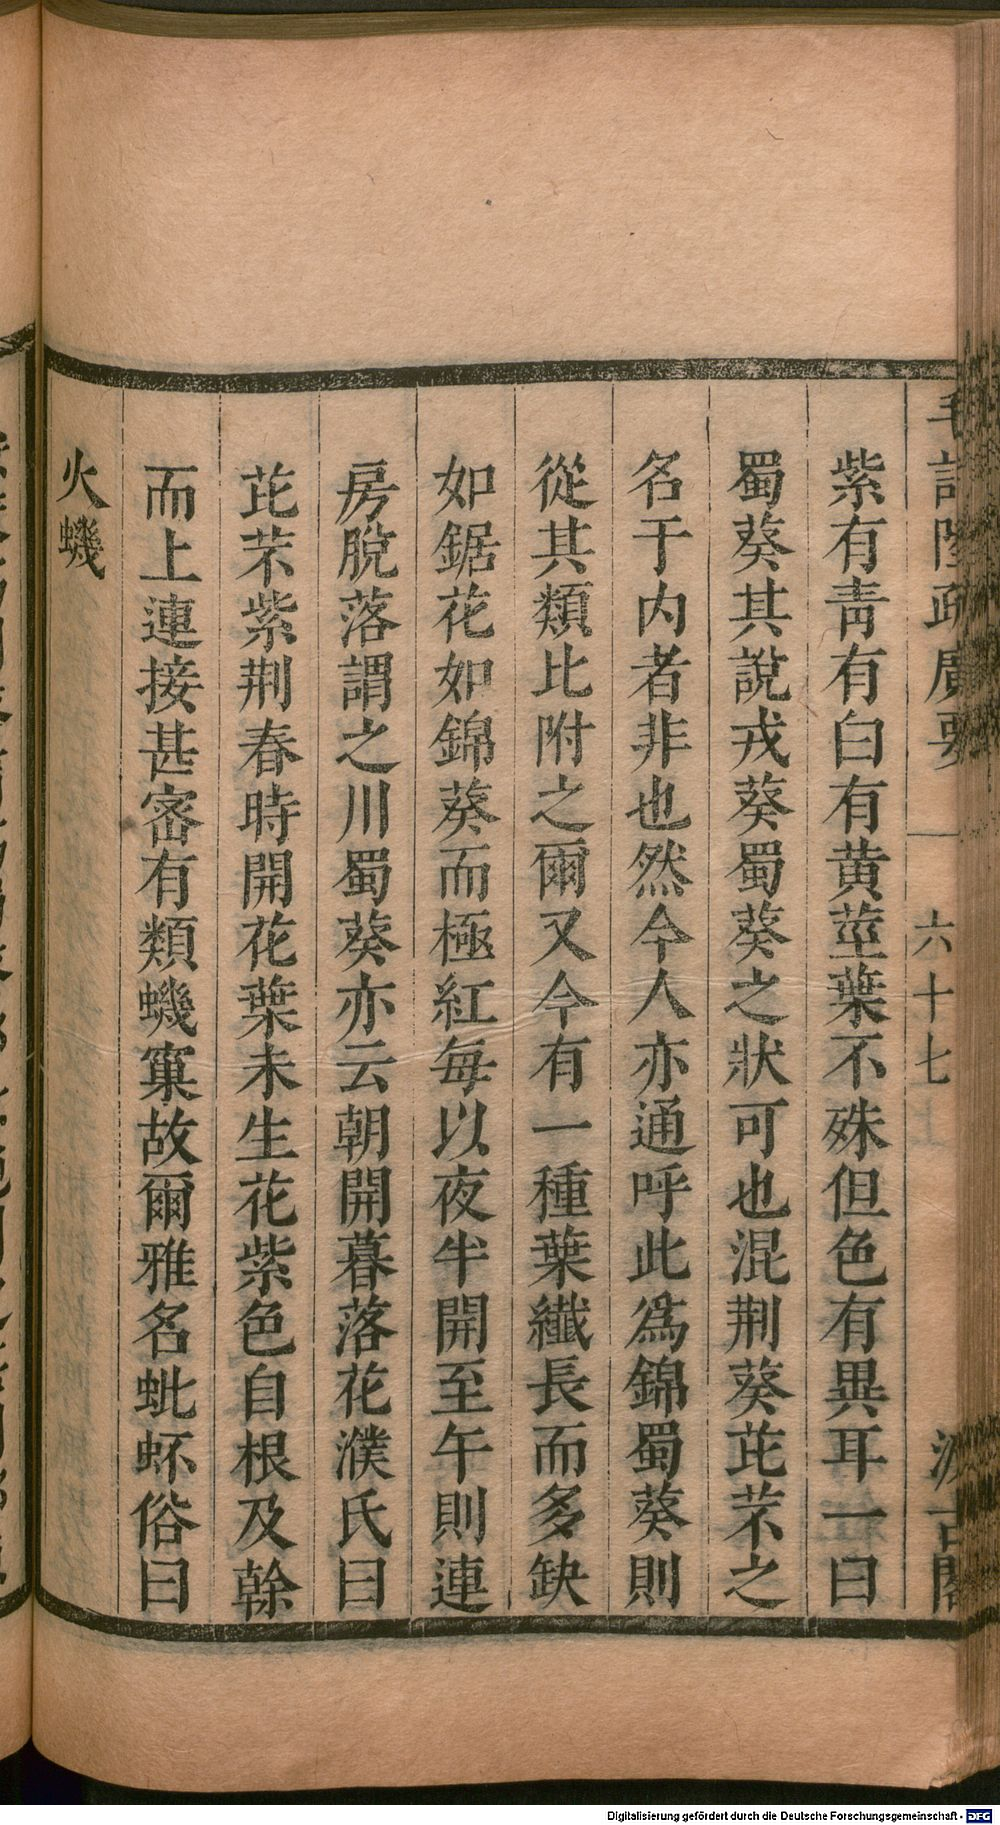 毛詩陸疏廣要 六十七 汲古閣
紫有青有白有黄莖葉不殊但色有異耳一曰
蜀葵其說戎葵蜀葵之狀可也混荆葵芘芣之
名于内者非也然今人亦通呼此爲錦蜀葵則
從其類比附之爾又今有一種葉纖長而多缺
如鋸花如錦葵而極紅每以夜半開至午則連
房脫落謂之川蜀葵亦云朝開暮落花濮氏曰
芘芣紫荆春時開花葉未生花紫色自根及榦
而上連接甚密有類蟣窠故爾雅名蚍衃俗曰
火蟣
Digitalisierung gefördert durch die Deutsche Forschungsgemeinschaft - DFG